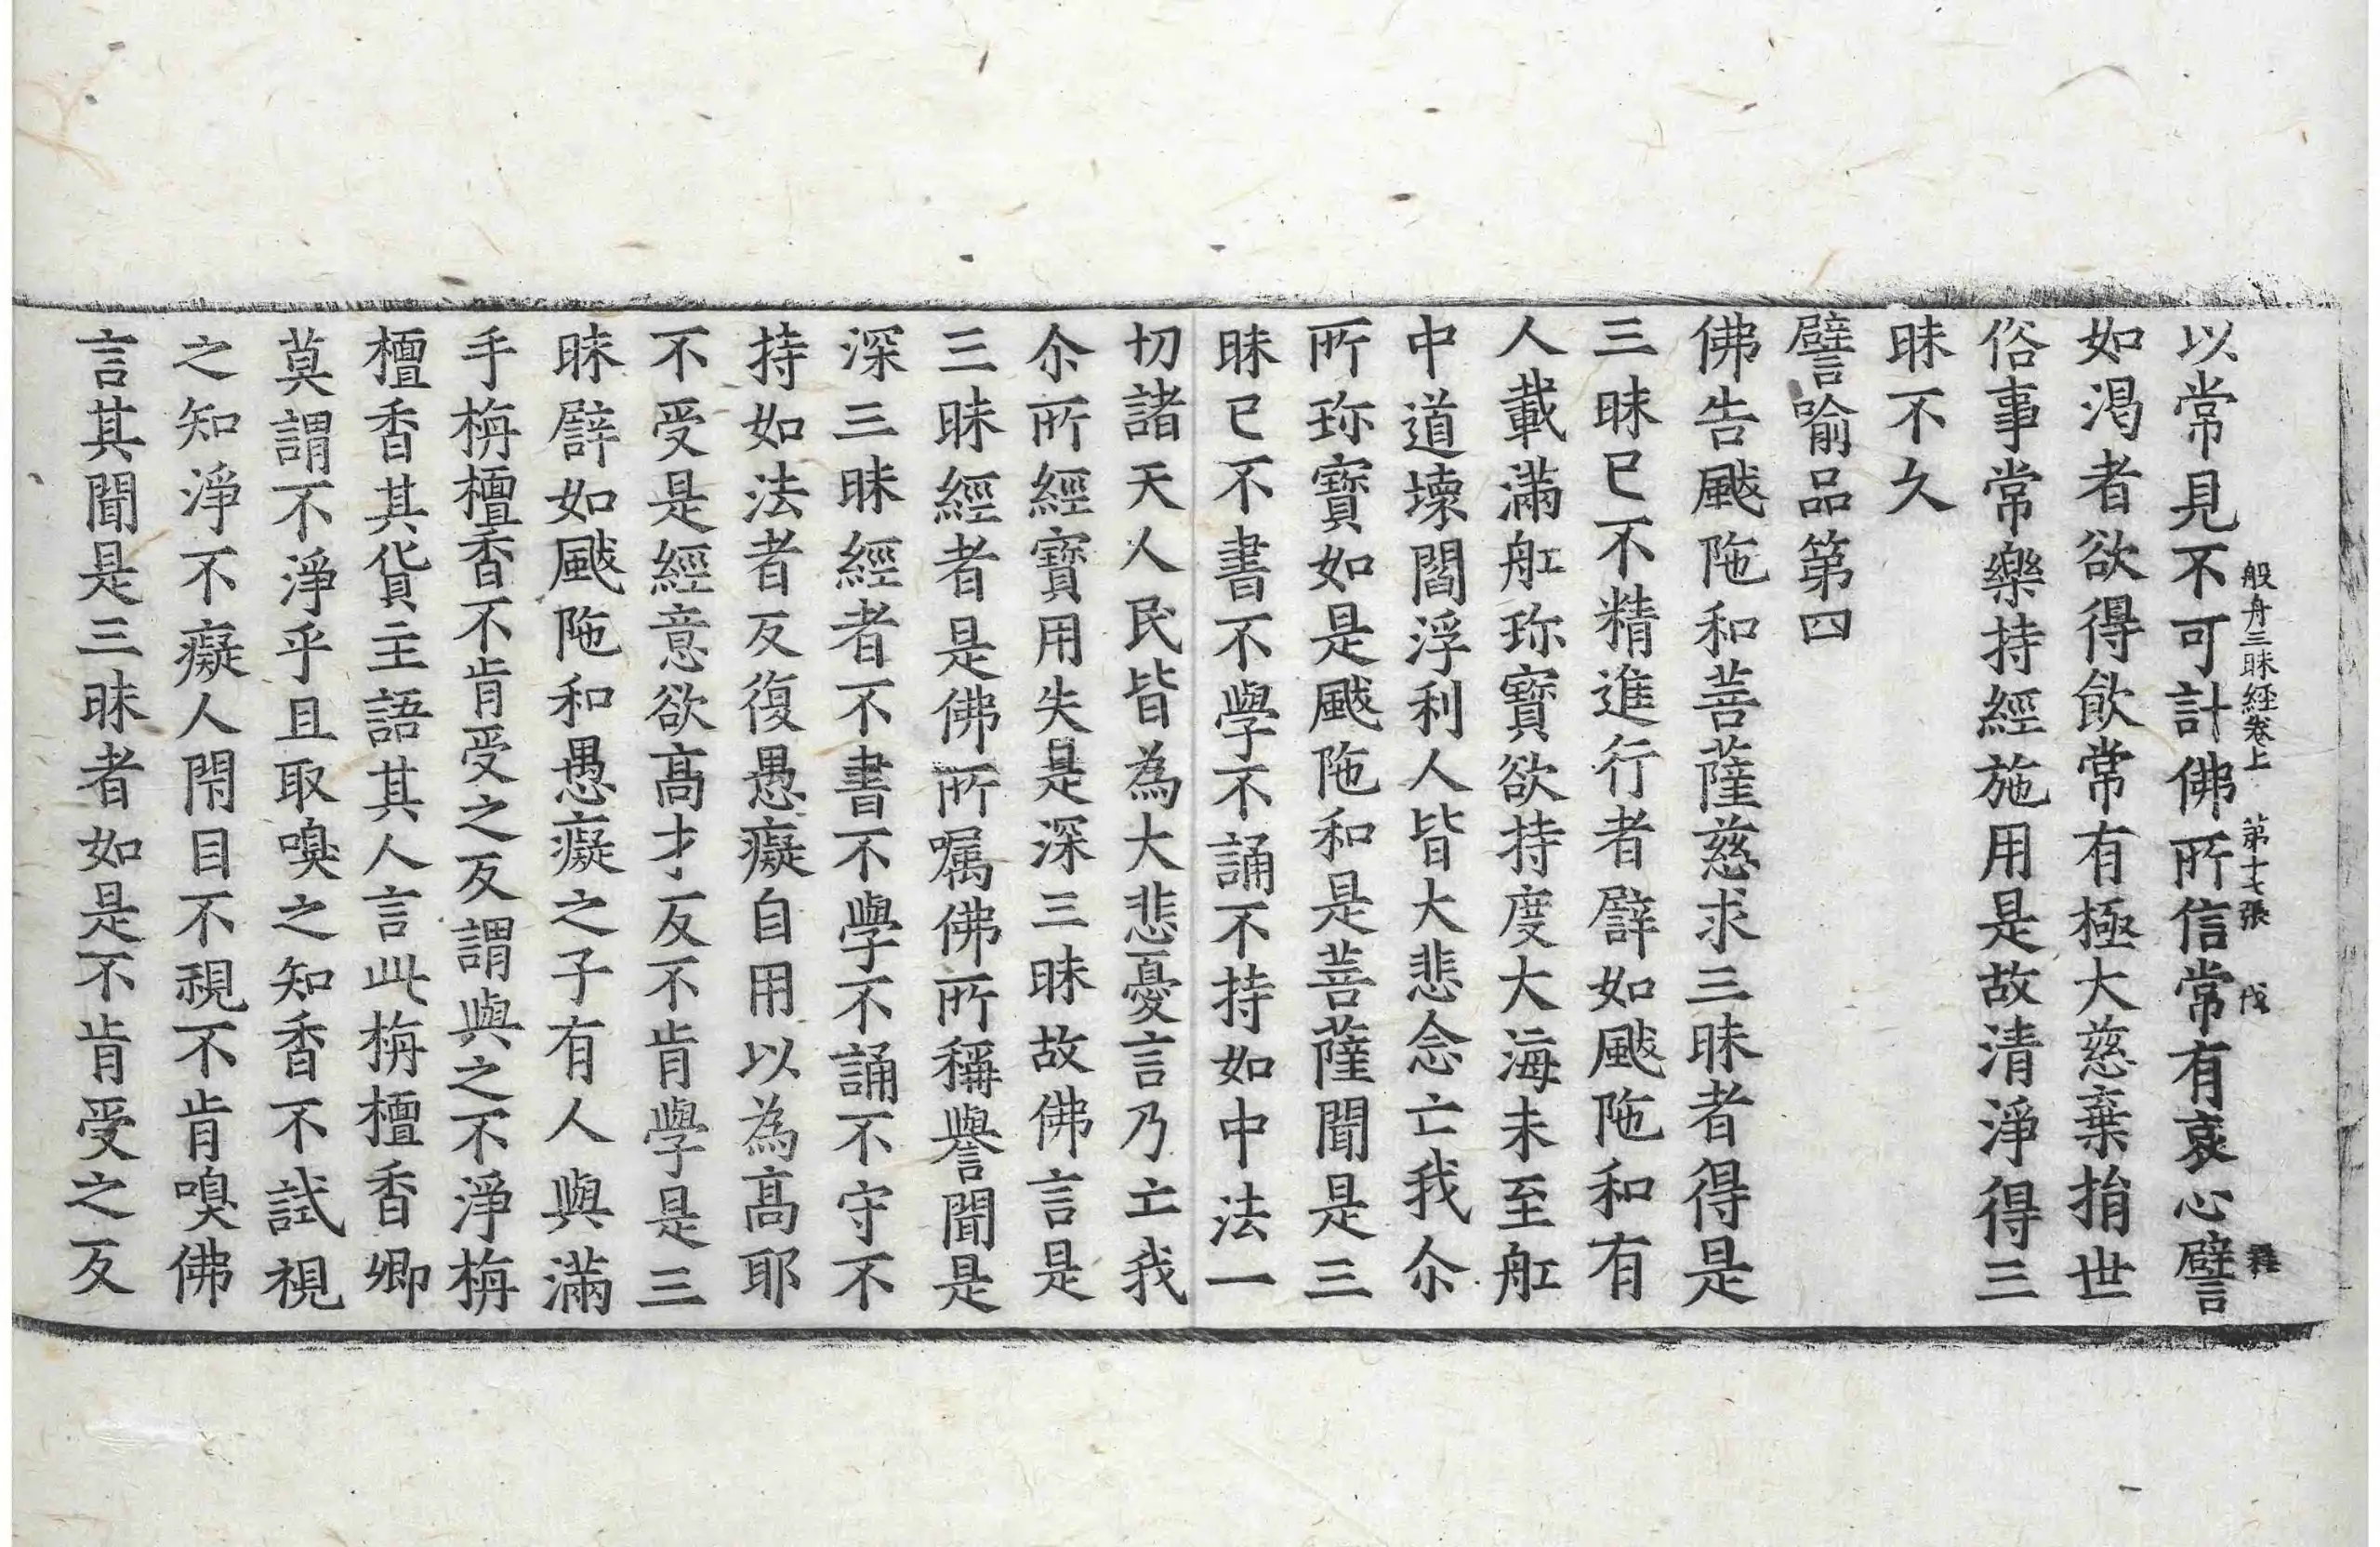 般舟三昧經卷上 第十七張 伐
以常見不可計佛所信常有哀心譬
如渴者欲得飮常有極大慈棄捐世
俗事常樂持經施用是故清淨得三
昧不久
譬喻品第四
佛告颰陁和菩薩慈求三昧者得是
三昧已不精進行者辟如颰陁和有
人載滿舩珎寶欲持度大海未至舩
中道壞閻浮利人皆大悲念亡我尒
所珎寶如是颰陁和是菩薩聞是三
昧已不書不學不誦不持如中法一
切諸天人民皆為大悲憂言乃亡我
尒所經寶用失是深三昧故佛言是
三昧經者是佛所囑佛所稱譽聞是
深三昧經者不書不學不誦不守不
持如法者反復愚癡自用以為高耶
不受是經意欲高才反不肯學是三
昧辟如颰陁和愚癡之子有人與滿
手栴檀香不肯受之反謂與之不淨栴
檀香其貨主語其人言此栴檀香卿
莫謂不淨乎且取嗅之知香不試視
之知淨不癡人閇目不視不肯嗅佛
言其聞是三昧者如是不肯受之反